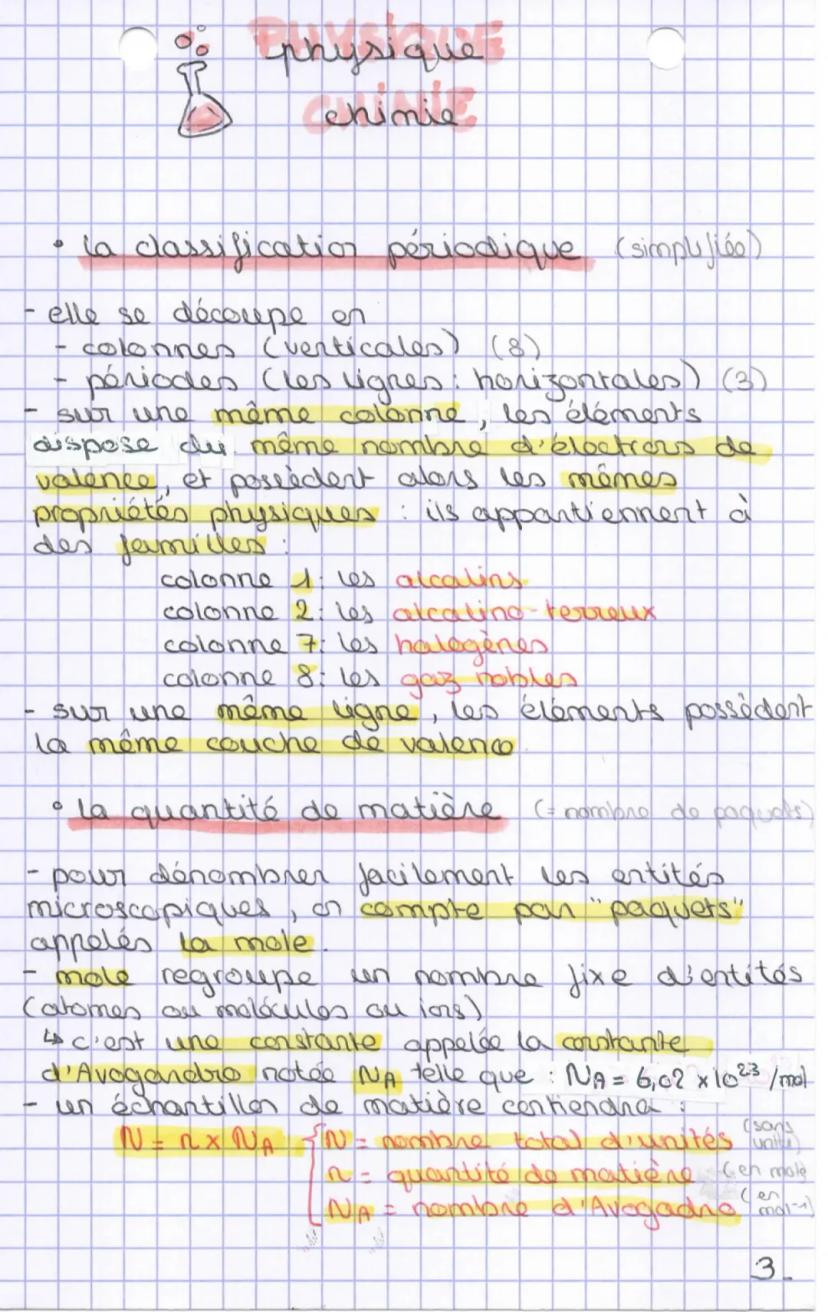 PHYSIQUE
physique
CHIMIE
chimie
• la classification périodique (simplifiée)
- elle se découpe en
- colonnes (verticales) (8)
- périodes (les lignes : horizontales) (3)
- sur une même colonne, les éléments
dispose du même nombre d'électrons de
valence, et possèdent alors les mêmes
propriétés physiques : ils appartiennent à
des familles :
colonne 1 : les alcalins
colonne 2 : les alcalino-terreux
colonne 7 : les halogènes
colonne 8 : les gaz nobles
- sur une même ligne, les éléments possèdent
la même couche de valence
• la quantité de matière (= nombre de paquets)
- pour dénombrer facilement les entités
microscopiques, on compte par "paquets"
appelés la mole.
- mole regroupe un nombre fixe d'entités
(atomes ou molécules ou ions)
↳ c'est une constante appelée la constante
d'Avogandro notée NA telle que : NA = 6,02 x 10²³ /mol
- un échantillon de matière contiendra :
N = n x NA { N = nombre total d'unités (sans unité)
n = quantité de matière (en mole
NA = nombre d'Avogadro (en mol-1)
3_